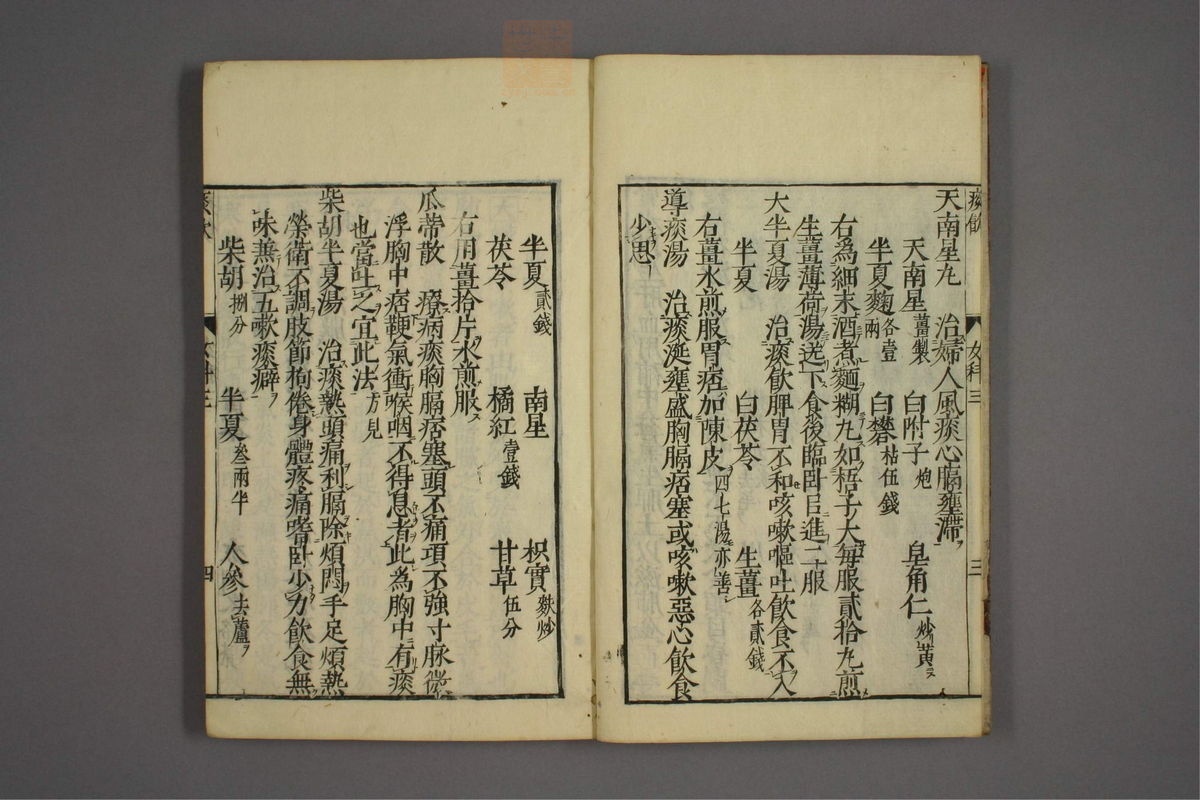 痰飲 女科三 三
天南星丸 治婦人風痰心膈壅滯
天南星薑製 白附子炮 皂角仁炒黃
半夏麴各壹兩 白礬枯伍錢
右爲細末酒煮麵糊丸如梧子大每服貳拾丸煎
生薑薄荷湯送下食後臨卧日進二服
大半夏湯 治痰飲脾胃不和咳嗽嘔吐飲食不入
半夏 白茯苓 生薑各貳錢
右薑水煎服胃痞加陳皮四七湯亦善
導痰湯 治痰涎壅盛胸膈痞塞或咳嗽惡心飲食
少思
半夏貳錢 南星 枳實麩炒
茯苓 橘紅壹錢 甘草伍分
右用薑拾片水煎服
瓜蒂散 療病痰胸膈痞塞頭不痛項不強寸脉微
浮胸中痞鞕氣衝喉咽不得息者此為胸中有痰
也當吐之宜此法方見
柴胡半夏湯 治痰熱頭痛利膈除煩悶手足煩熱
榮衛不調肢節拘倦身體疼痛嗜卧少力飲食無
味兼治五嗽痰癖
柴胡捌分 半夏叁兩半 人參去蘆
痰飲 女科三 四